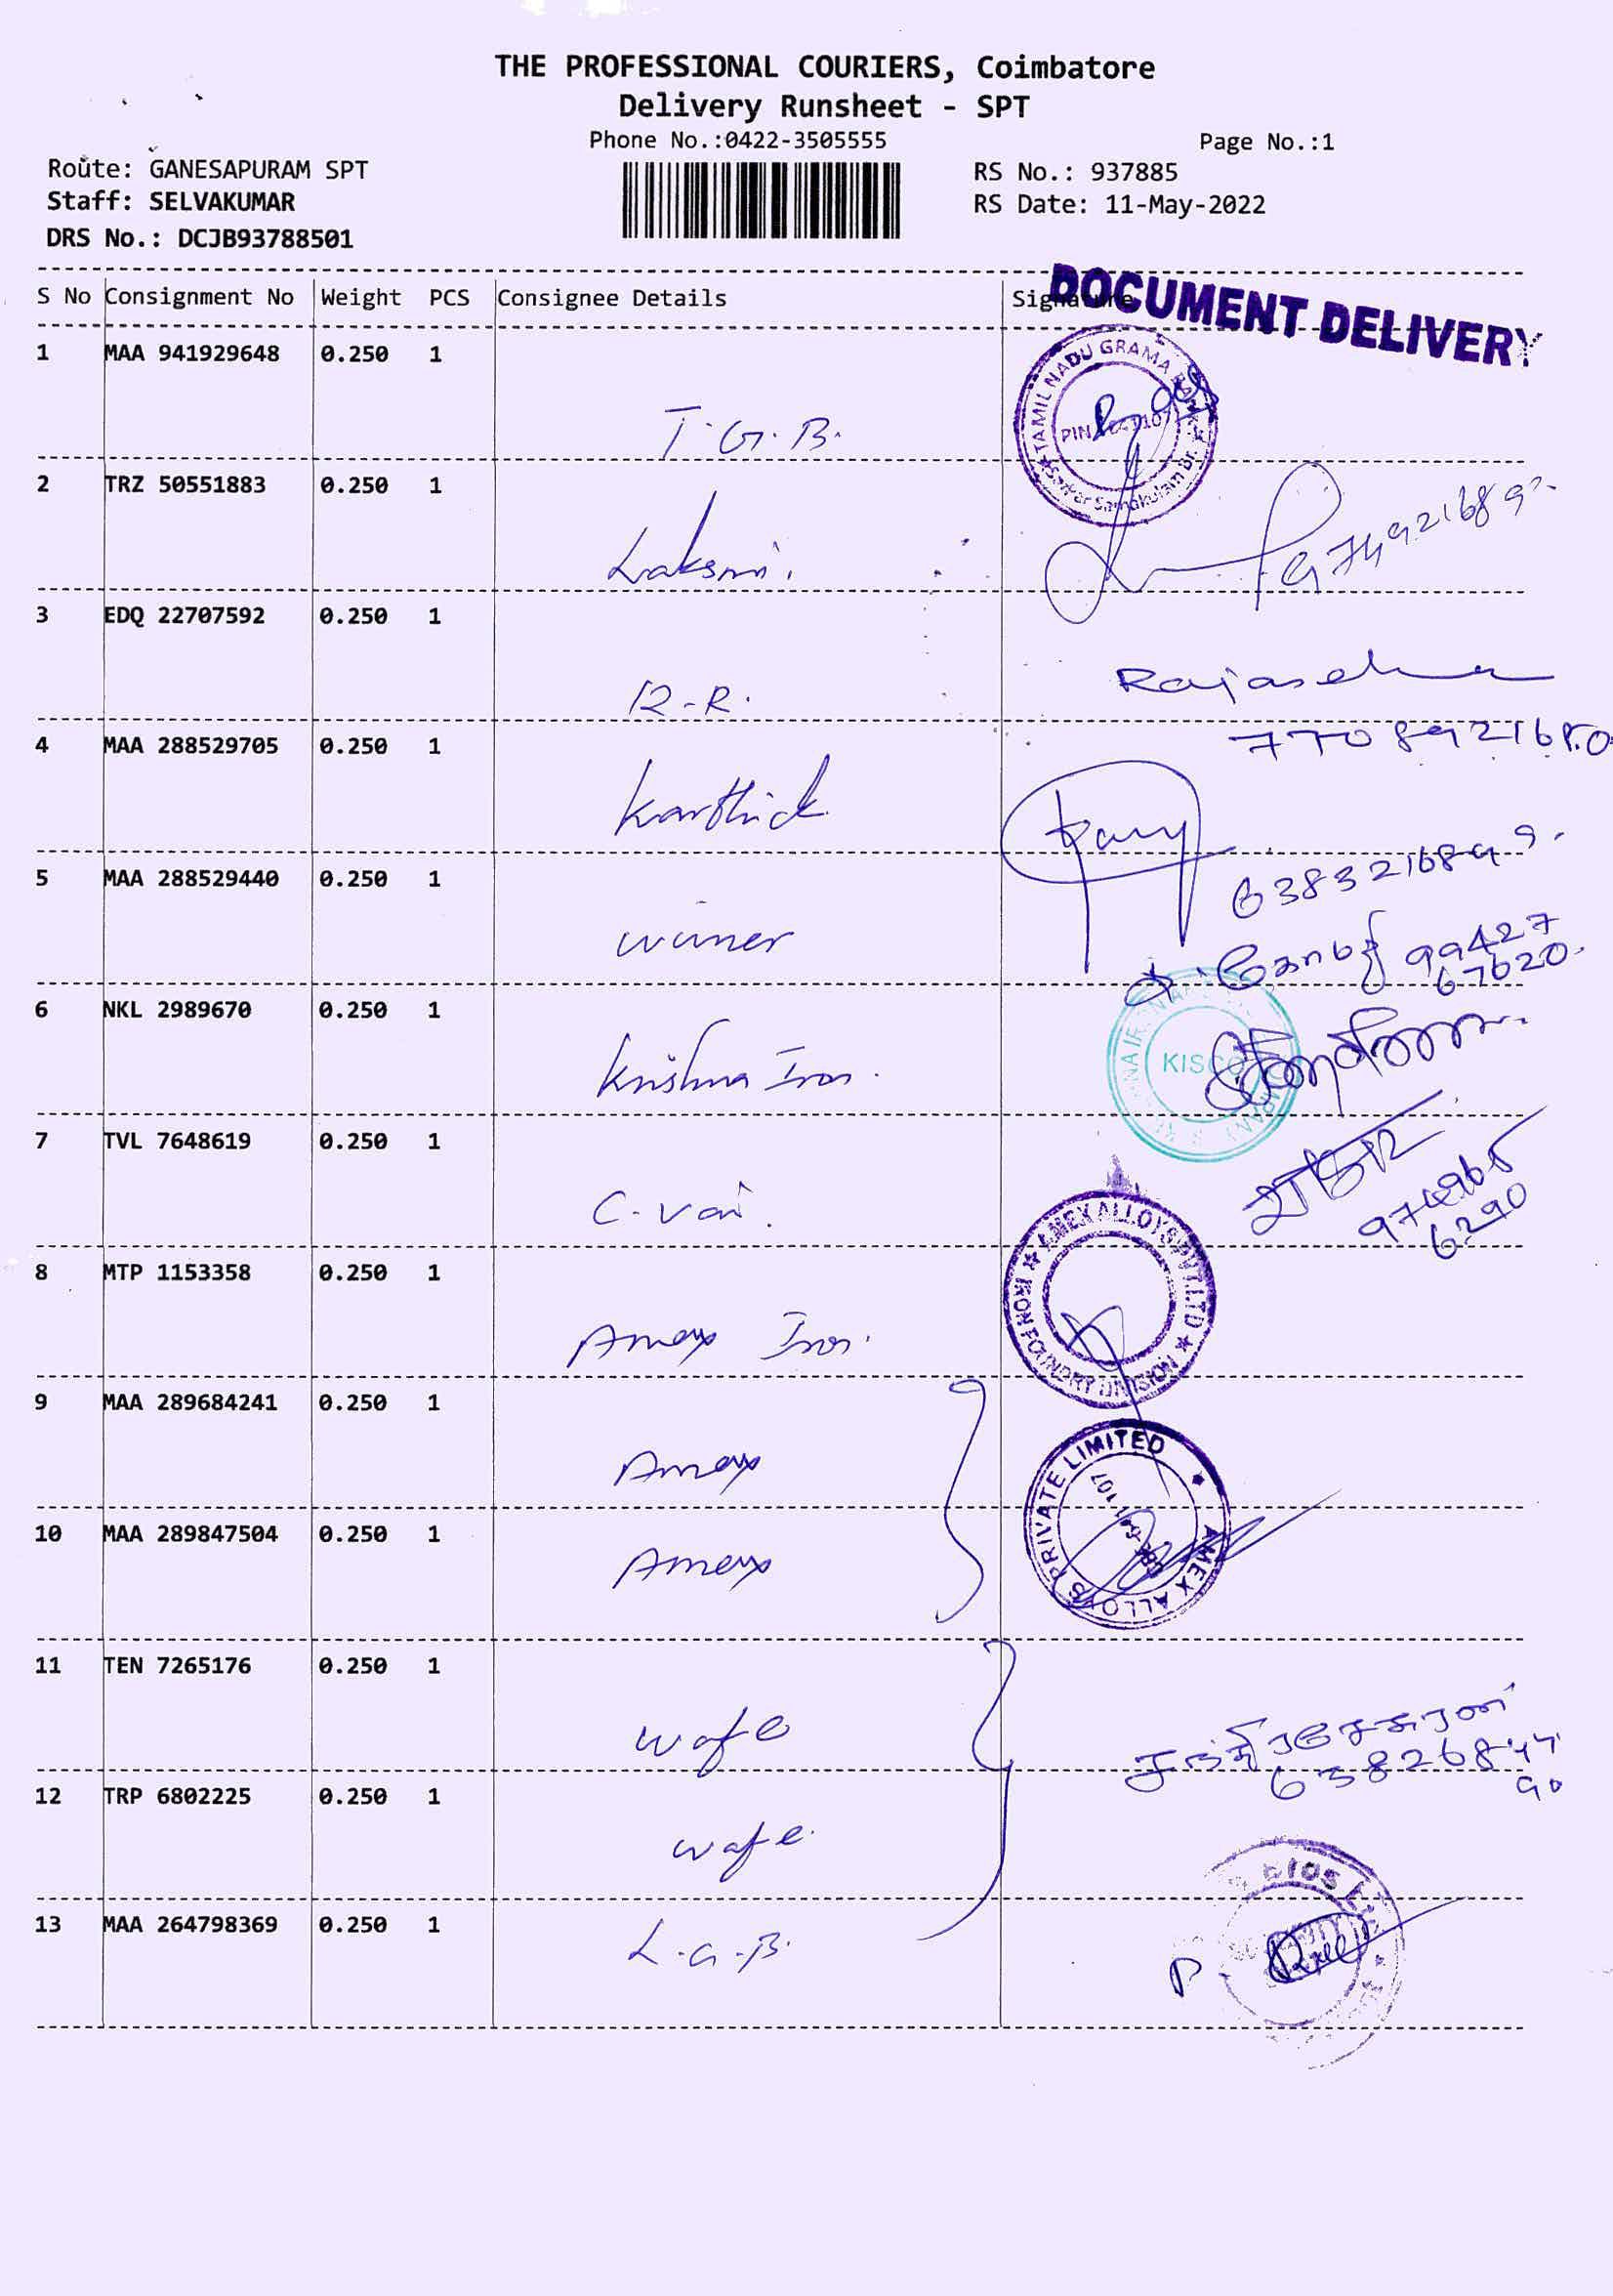 THE PROFESSIONAL COURIERS, Coimbatore
Delivery Runsheet - SPT
Phone No.:0422-3505555
Page No.:1
Route: GANESAPURAM SPT
RS No.: 937885
Staff: SELVAKUMAR
RS Date: 11-May-2022
DRS No.: DCJB93788501
S No Consignment No Weight PCS Consignee Details Signature
DOCUMENT DELIVERY
1 MAA 941929648 0.250 1
T.G.B.
TAMIL NADU GRAMA
PIN
2 TRZ 50551883 0.250 1
Laksmi.
3 EDQ 22707592 0.250 1
R-R.
4 MAA 288529705 0.250 1
Karthick
5 MAA 288529440 0.250 1
winner
99427
67620
6 NKL 2989670 0.250 1
Krishna Iron.
KISCO
7 TVL 7648619 0.250 1
C-Vai.
8 MTP 1153358 0.250 1
Amex Iron.
AMEX ALLOYS PVT.LTD
IRON FOUNDRY DIVISION
9 MAA 289684241 0.250 1
Amex
10 MAA 289847504 0.250 1
Amex
AMEX ALLOYS PRIVATE LIMITED
11 TEN 7265176 0.250 1
wafe
12 TRP 6802225 0.250 1
wafe.
13 MAA 264798369 0.250 1
L.G.B.